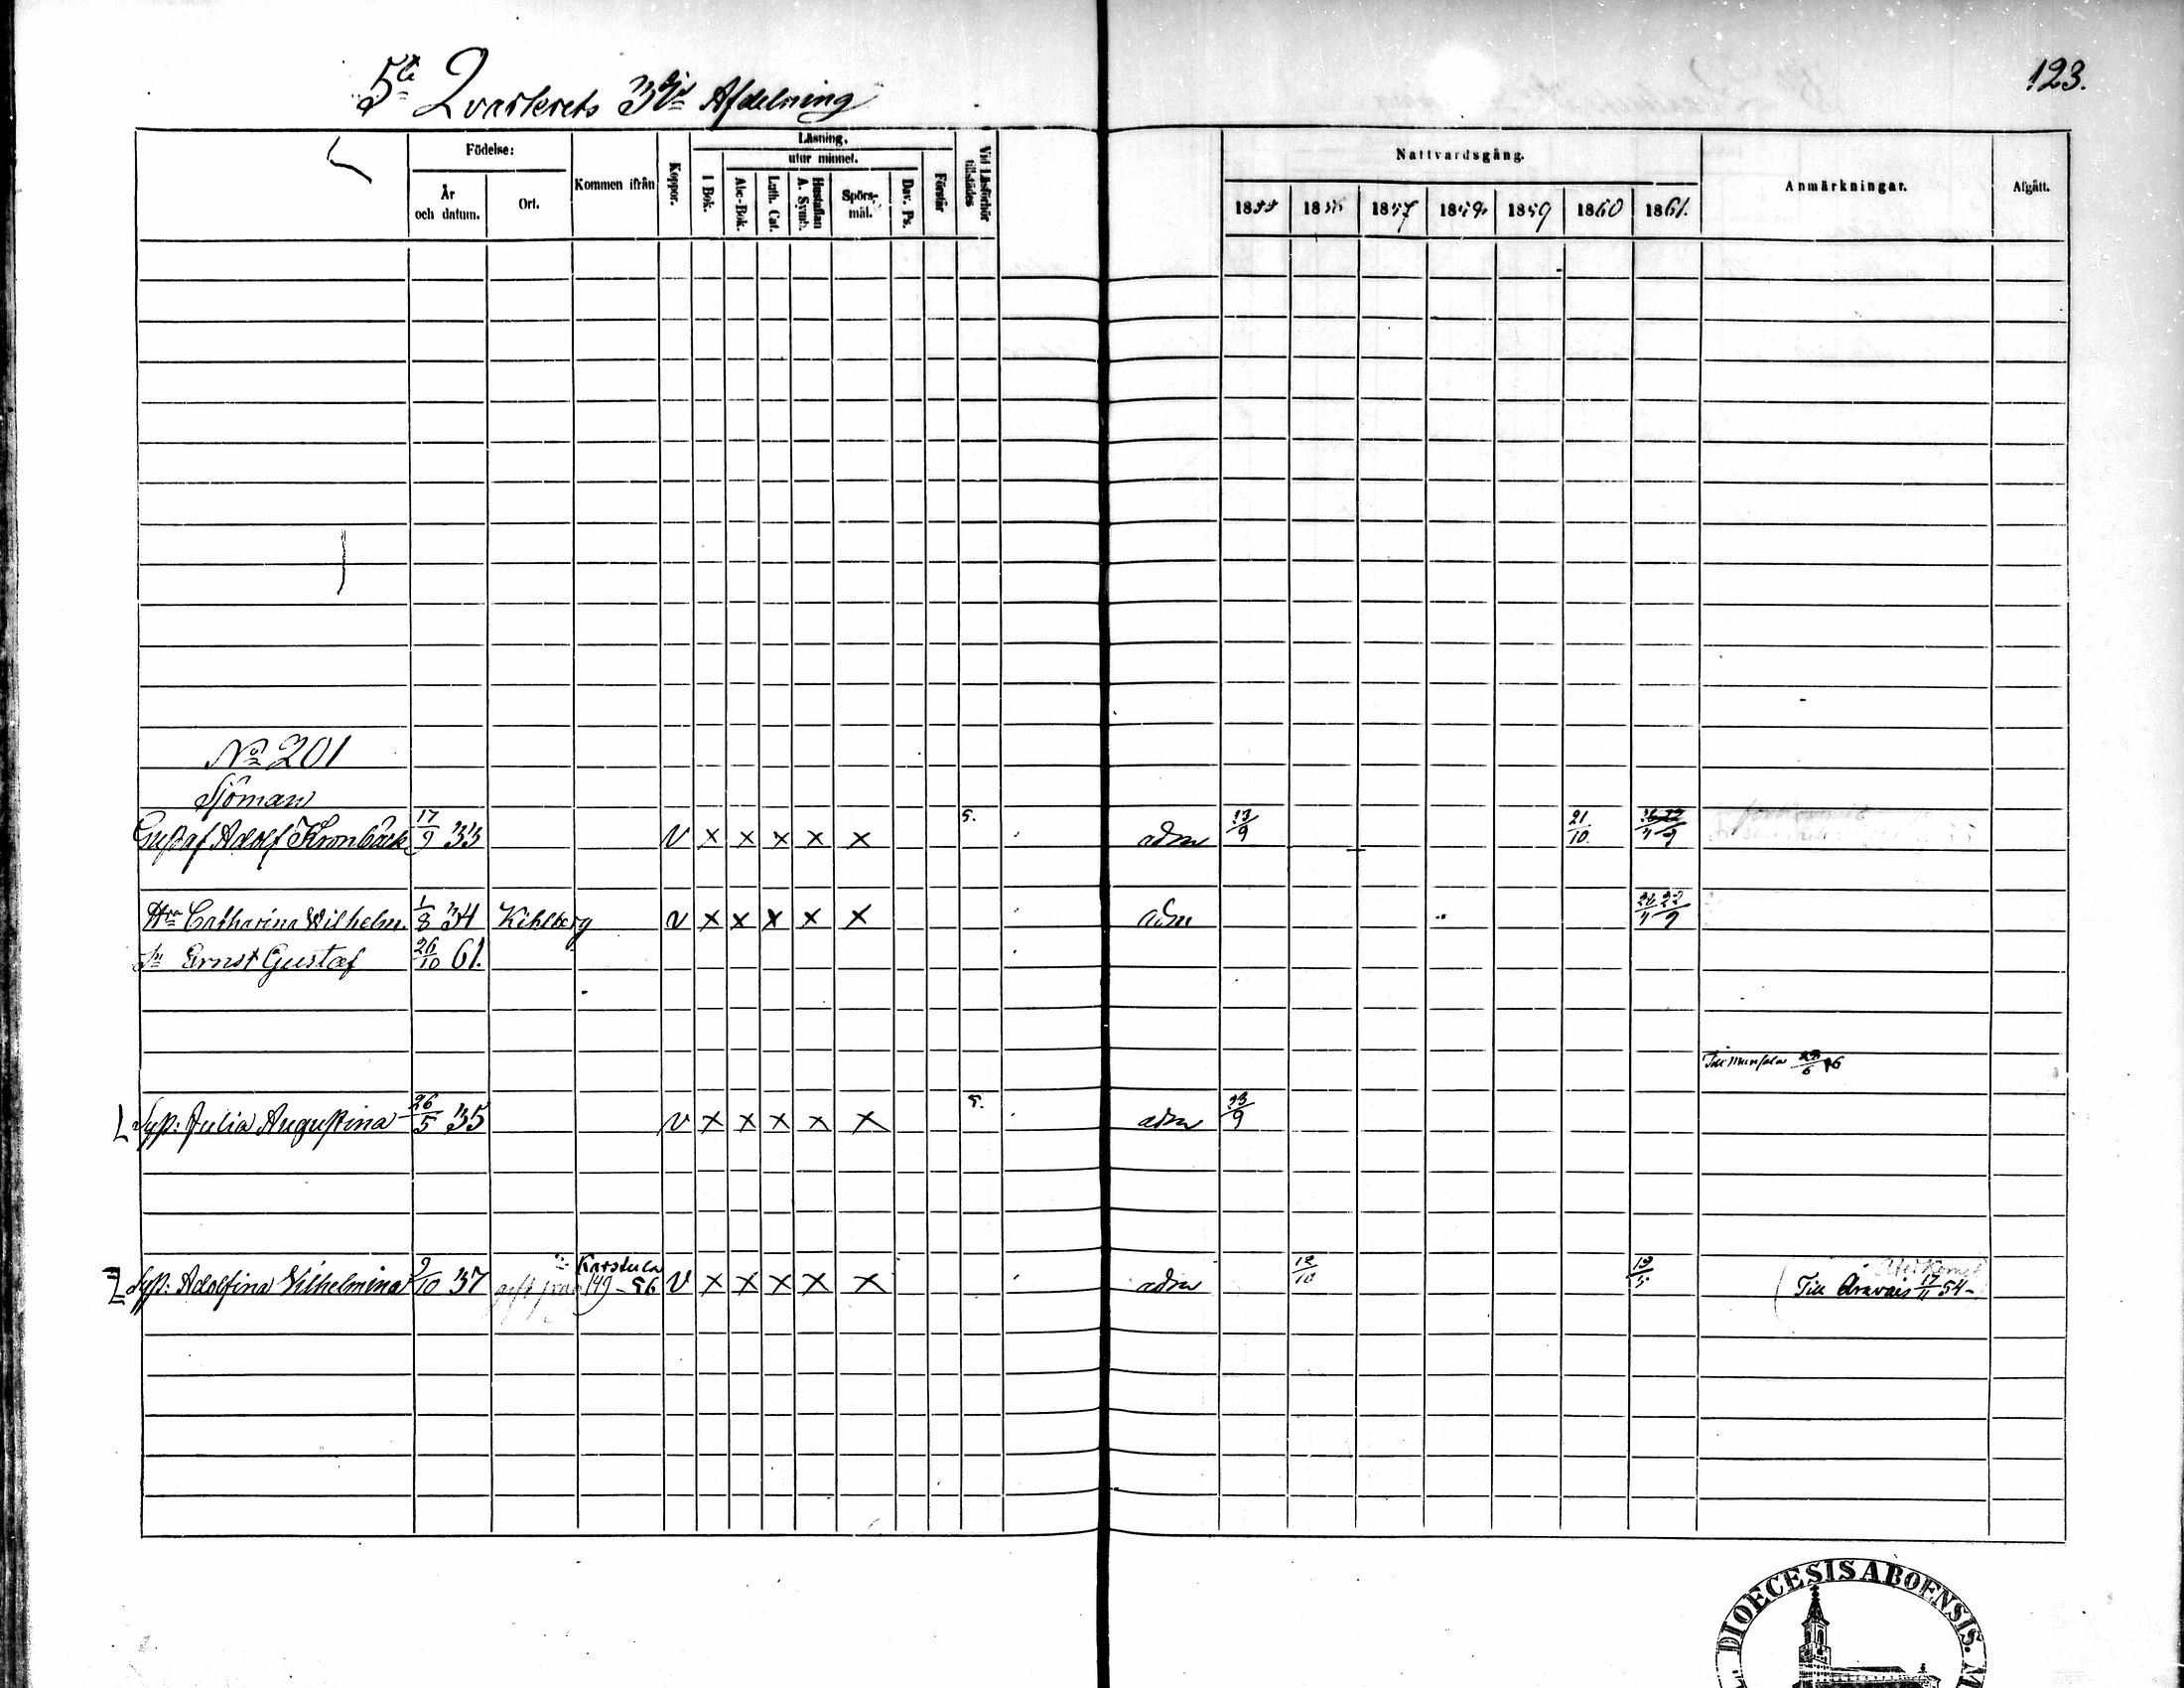 5te Qvarterets 3dje Afdelning
123.
Födelse:
År och datum.
Ort.
Kommen ifrån
Koppor.
Läsning,
I Bok.
utur minnet.
Abc-Bok.
Luth. Cat.
Hustaflan A. Symb.
Spörsmål.
Dav. Ps.
Förstår
Vid Läsförhör tillstädes
Nattvardsgång.
1855 1856 1857 1858 1859 1860 1861.
Anmärkningar.
Afgått.
No 201
Sjöman
Gustaf Adolf Kronbäck 17/9 33 v × × × × × 5. adm 23/9 21/10.
Hru Catharina Wilhelm. 1/8 34 Kihlberg v × × × × × adm 22/9
Sn Ernst Gustaf 26/10 61.
Till 29/6 56
Syst: Julia Augustina 26/5 35 v × × × × × 5. adm 23/9
Syst: Adolfina Vilhelmina 9/10 37 gift Karstula 149 - 56 v × × × × × adm 12/10
Till Oravais 17/11 54-
DIOECESIS ABOENSIS.